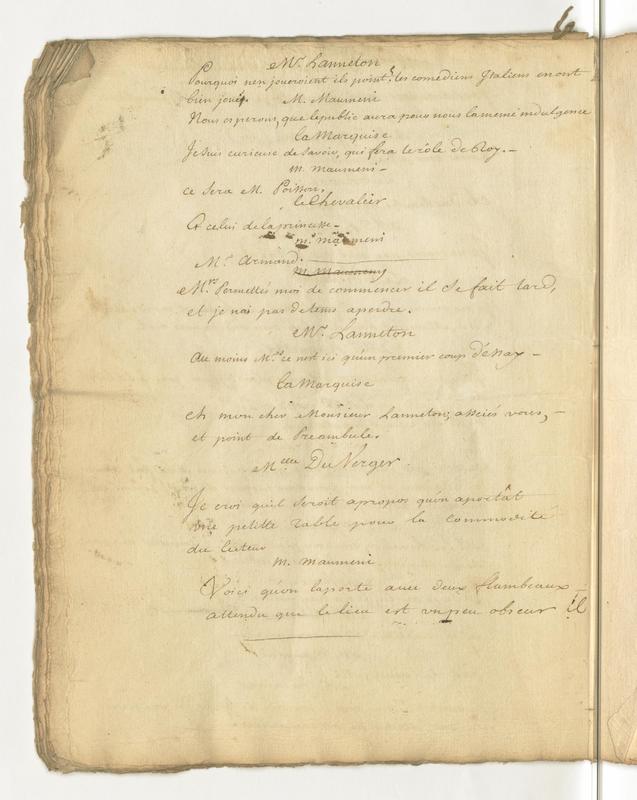 Mr. Lanneton
Pourquoi nen joueroient ils point, les comediens Italiens en ont
bien joués. M. Maumeni
Nous esperons, que le public aura pour nous la meme indulgence
La Marquise
Je suis curieuse de savoir, qui fera le rôle de Roy. -
M. Maumeni -
ce sera M. Poisson.
le Chevalier
Et celui de la princesse -
M. Maumeni
Mr. Armand.
Mrs. Permettés moi de commencer il se fait tard,
et je nai pas de tems a perdre.
Mr. Lanneton
Au moins Mrs ce nest ici qu'un premier coup d'essay -
La Marquise
eh mon cher Monsieur Lanneton, assciés vous, -
et point de Preambule.
Melle Du Verger.
Je croi quil seroit apropos qu'on aportât
une petitte table pour la commodité
du lecteur
M. Maumeni
Voici qu'on laporte avec deux flambeaux
attendu que le lieu est un peu obscur il